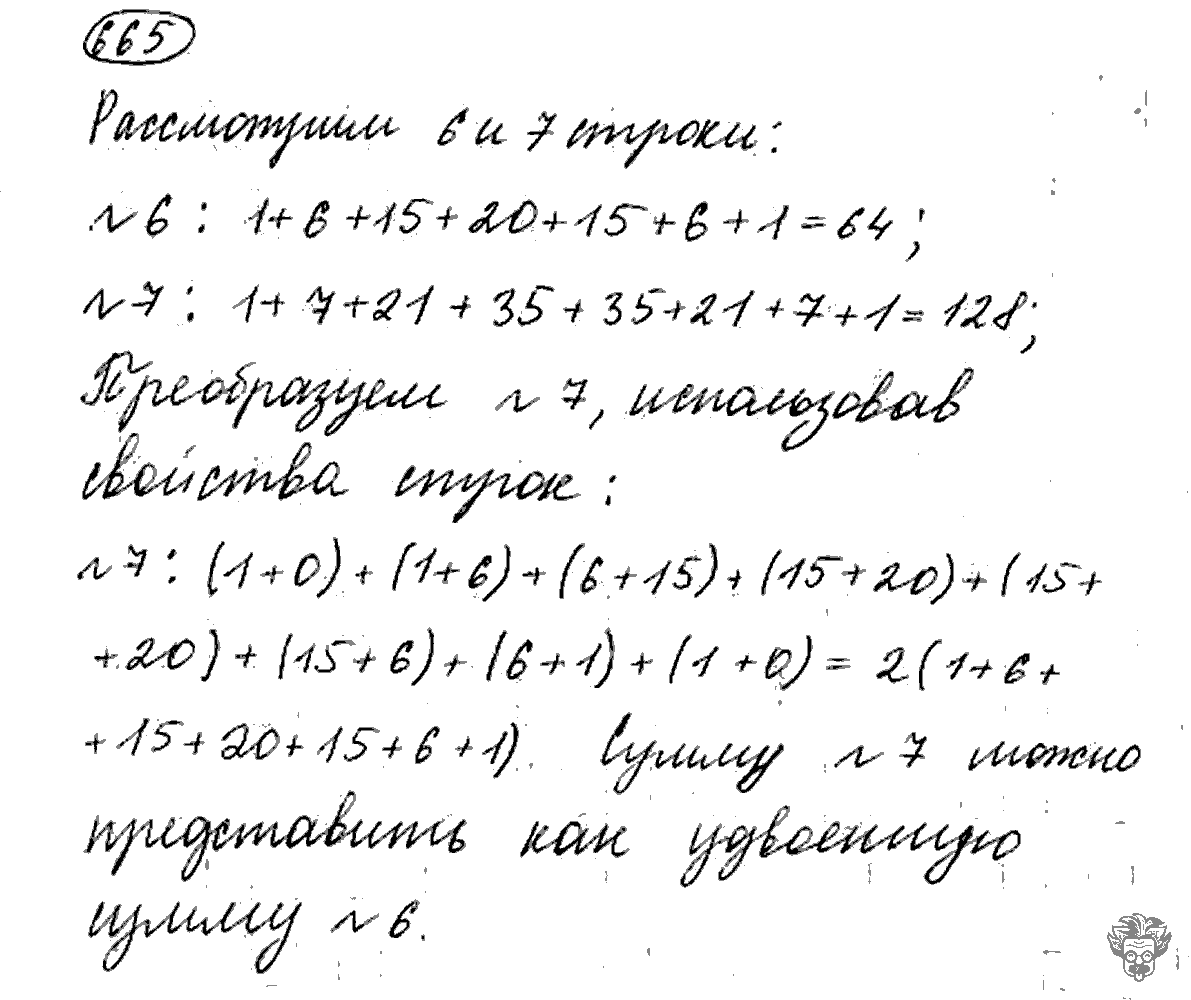 665
Рассмотрим 6 и 7 строки:
~6: 1+6+15+20+15+6+1=64;
~7: 1+7+21+35+35+21+7+1=128;
Преобразуем ~7, использовав
свойства строк:
~7: (1+0)+(1+6)+(6+15)+(15+20)+(15+
+20)+(15+6)+(6+1)+(1+0)=2(1+6+
+15+20+15+6+1). Сумму ~7 можно
представить как удвоенную
сумму ~6.